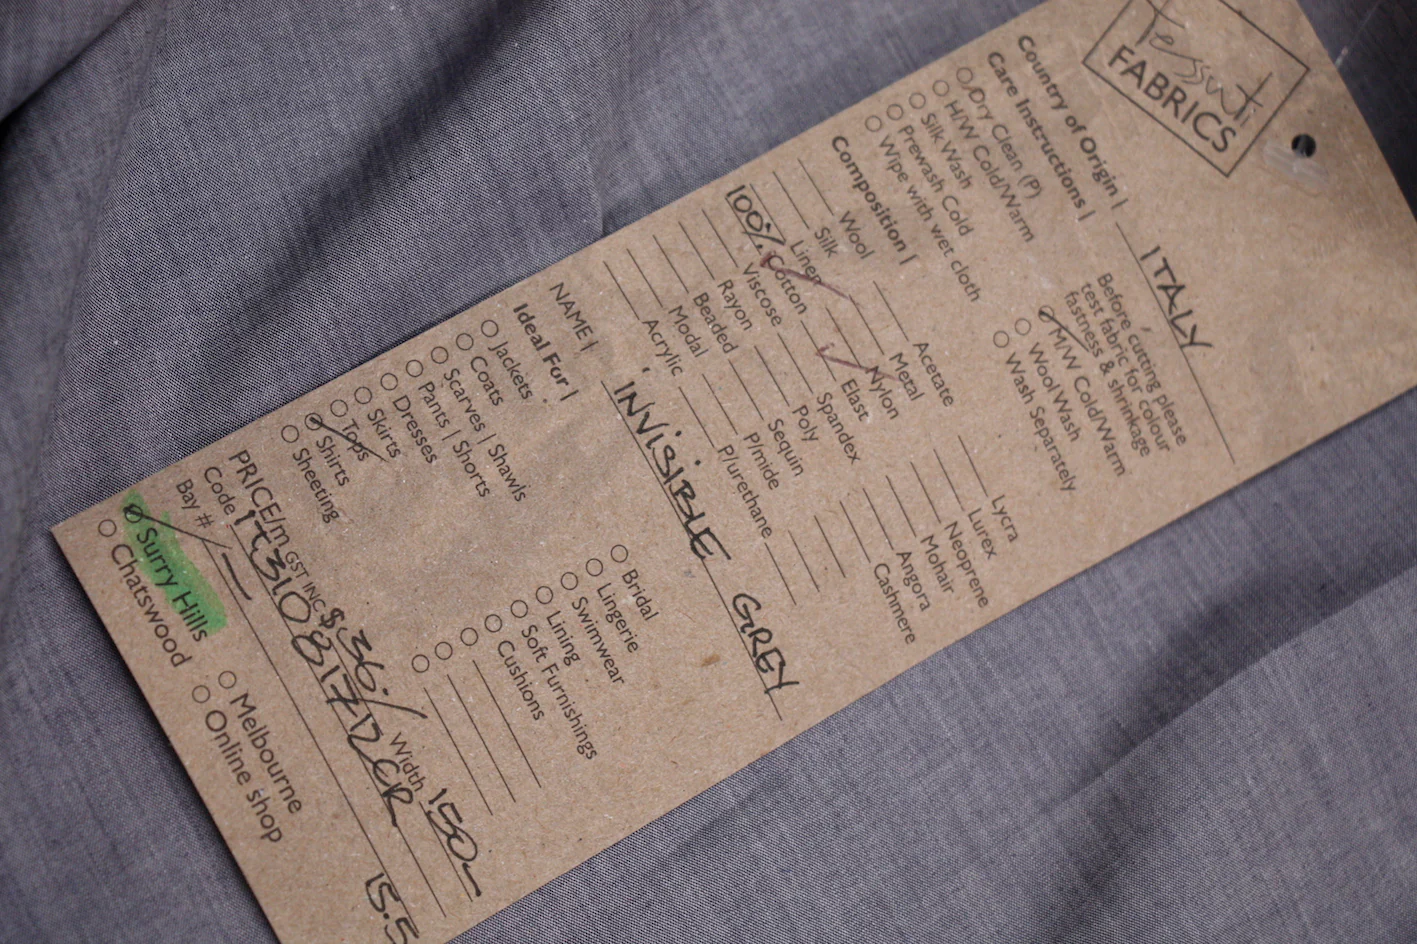 Tessuti
FABRICS
Country of Origin | ITALY
Care Instructions |
Before cutting please
test fabric for colour
fastness & shrinkage
Dry Clean (P)
H/W Cold/Warm
Silk Wash
Prewash Cold
Wipe with wet cloth
M/W Cold/Warm
Wool Wash
Wash Separately
Composition |
Wool
Silk
Linen
100% Cotton
Viscose
Rayon
Beaded
Modal
Acrylic
Acetate
Metal
Nylon
Elast
Spandex
Poly
Sequin
P/mide
P/urethane
Lycra
Lurex
Neoprene
Mohair
Angora
Cashmere
NAME | INVISIBLE GREY
Ideal For |
Jackets
Coats
Scarves | Shawls
Pants | Shorts
Dresses
Skirts
Tops
Shirts
Sheeting
Bridal
Lingerie
Swimwear
Lining
Soft Furnishings
Cushions
PRICE/m GST INC $36./ Width 150-
Code
Bay #
15.5
Surry Hills
Chatswood
Melbourne
Online shop